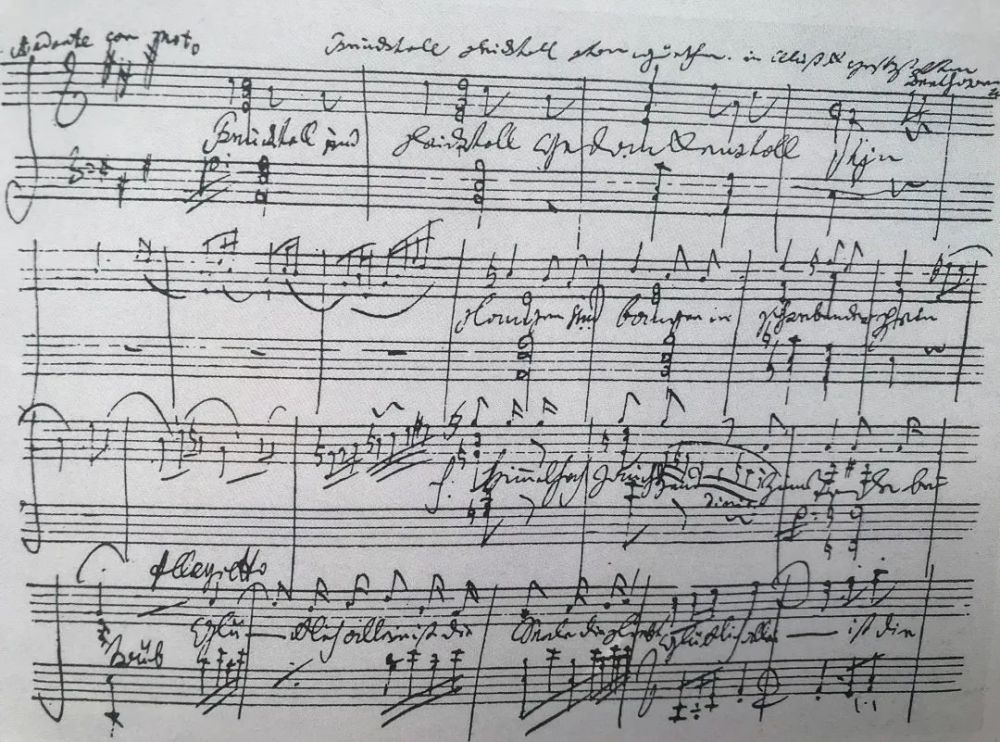 Andante con moto Freudvoll leidvoll von Göthe. in Musik gesetzt von Beethoven
Freudvoll und leidvoll Gedankenvoll seyn
Langen und bangen in schwebender Pein
f. himmelhoch jauchzend zum Tode be
dimin
Allegretto
trüb Glü — cklich allein ist die Seele die liebt glücklich allein — ist die